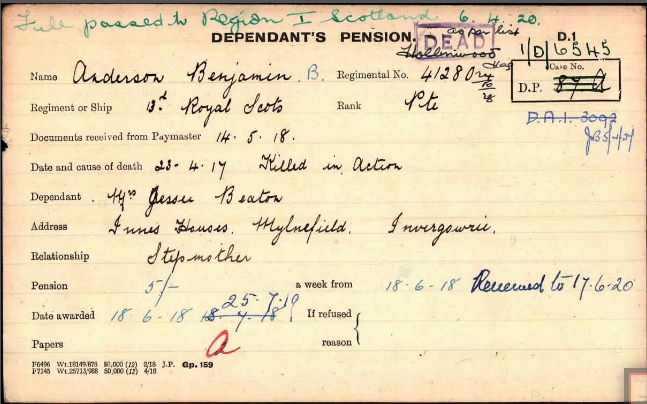 File passed to Region I Scotland 6. 4. 20.
as per list
DEPENDANT'S PENSION. DEAD D.1
Hollinwood 1/D/6545
Name Anderson Benjamin. B. Regimental No. 41280 Case No.
D.P. 87 A
Regiment or Ship 13th Royal Scots Rank Pte
D.A.1. 3092
Documents received from Paymaster 14. 5. 18.
Date and cause of death 23. 4. 17 Killed in Action
Dependant Mrs Jessie Beaton
Address Innes Houses, Mylnefield, Invergowrie.
Relationship Stepmother
Pension 5/- a week from 18-6-18 Renewed to 17.6.20
25.7.19
Date awarded 18-6-18 18.7.18 If refused
Papers A reason
F6496 Wt.18149/878 50,000 (12) 2/18 J.P. Gp. 159
F7145 Wt.25713/988 50,000 (12) 4/18